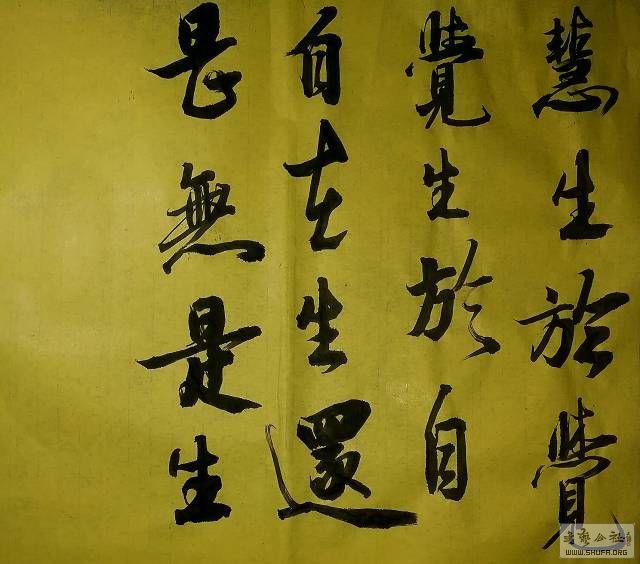 慧生於覺
覺生於自
自在生還
是無是生
书艺公社
WWW.SHUFA.ORG